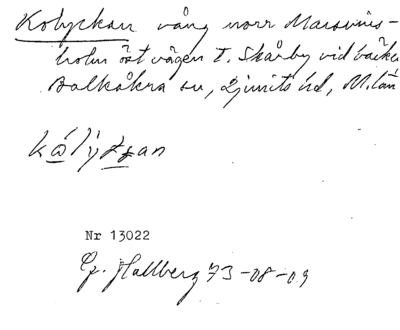 Kolyckan vång norr Marsvins-
holm öst vägen t. Skårby vid bäcken
Balkåkra sn, Ljunits hd, M. län
kålyckan
Nr 13022
G. Hallberg 73-08-09